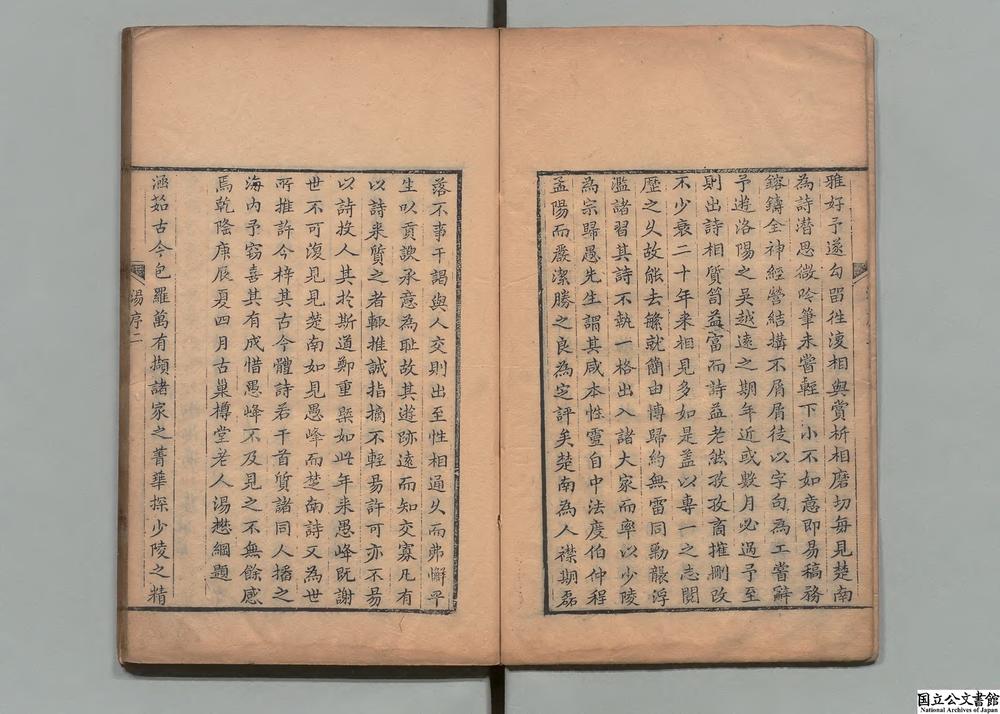 雅好予遂句留徃復相與賞析相磨切每見楚南
為詩潜思微唫筆未嘗輕下小不如意即易稿務
鎔鑄全神經營結搆不屑屑徒以字句為工嘗辭
予遊洛陽之吳越遠之期年近或數月必過予至
則出詩相質笥益富而詩益老然孜孜商摧刪改
不少衰二十年来相見多如是盖以專一之志閱
歷之乆故能去縧就簡由博歸約無雷同勦襲浮
濫諸習其詩不執一格出入諸大家而率以少陵
為宗歸愚先生謂其咸本性靈自中法度伯仲程
孟陽而嚴潔勝之良為定評矣楚南為人襟期磊
落不事干謁與人交則出至性相通乆而弗懈平
生以貢諛承意為耻故其遊跡遠而知交寡凡有
以詩来質之者輙推誠指摘不輕易許可亦不易
以詩投人其於斯道鄭重槩如此年来愚峰旣謝
世不可復見見楚南如見愚峰而楚南詩又為世
所推許今梓其古今體詩若干首質諸同人播之
海内予竊喜其有成惜愚峰不及見之不無餘感
焉乾隆庚辰夏四月古巢樽堂老人湯懋綱題
湯序二
涵茹古今包羅萬有擷諸家之菁華探少陵之精
国立公文書館
National Archives of Japan